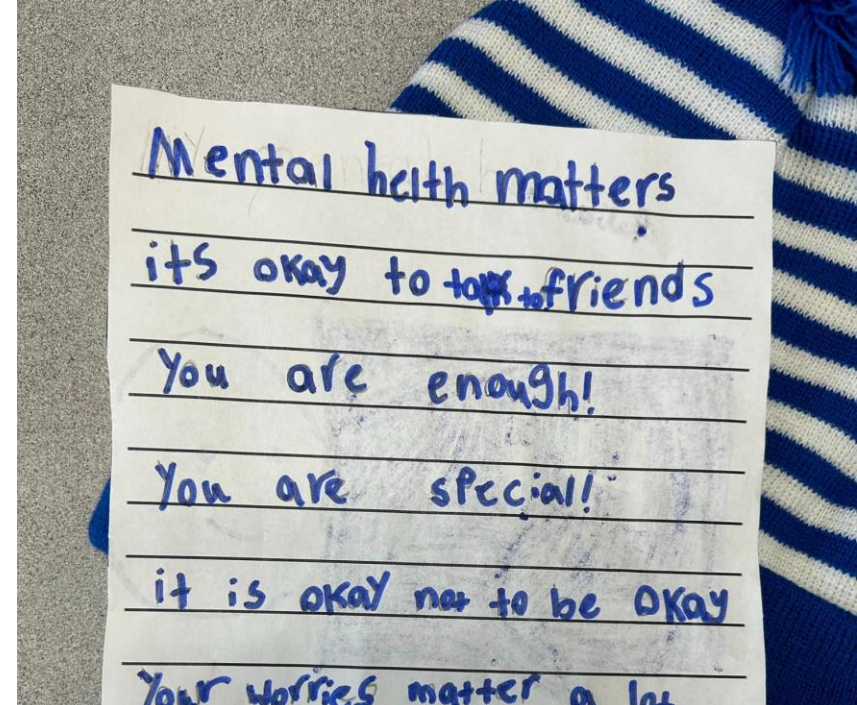 Mental helth matters
its okay to talk to friends
You are enough!
You are special!
it is okay not to be okay
Your worries matter a lot